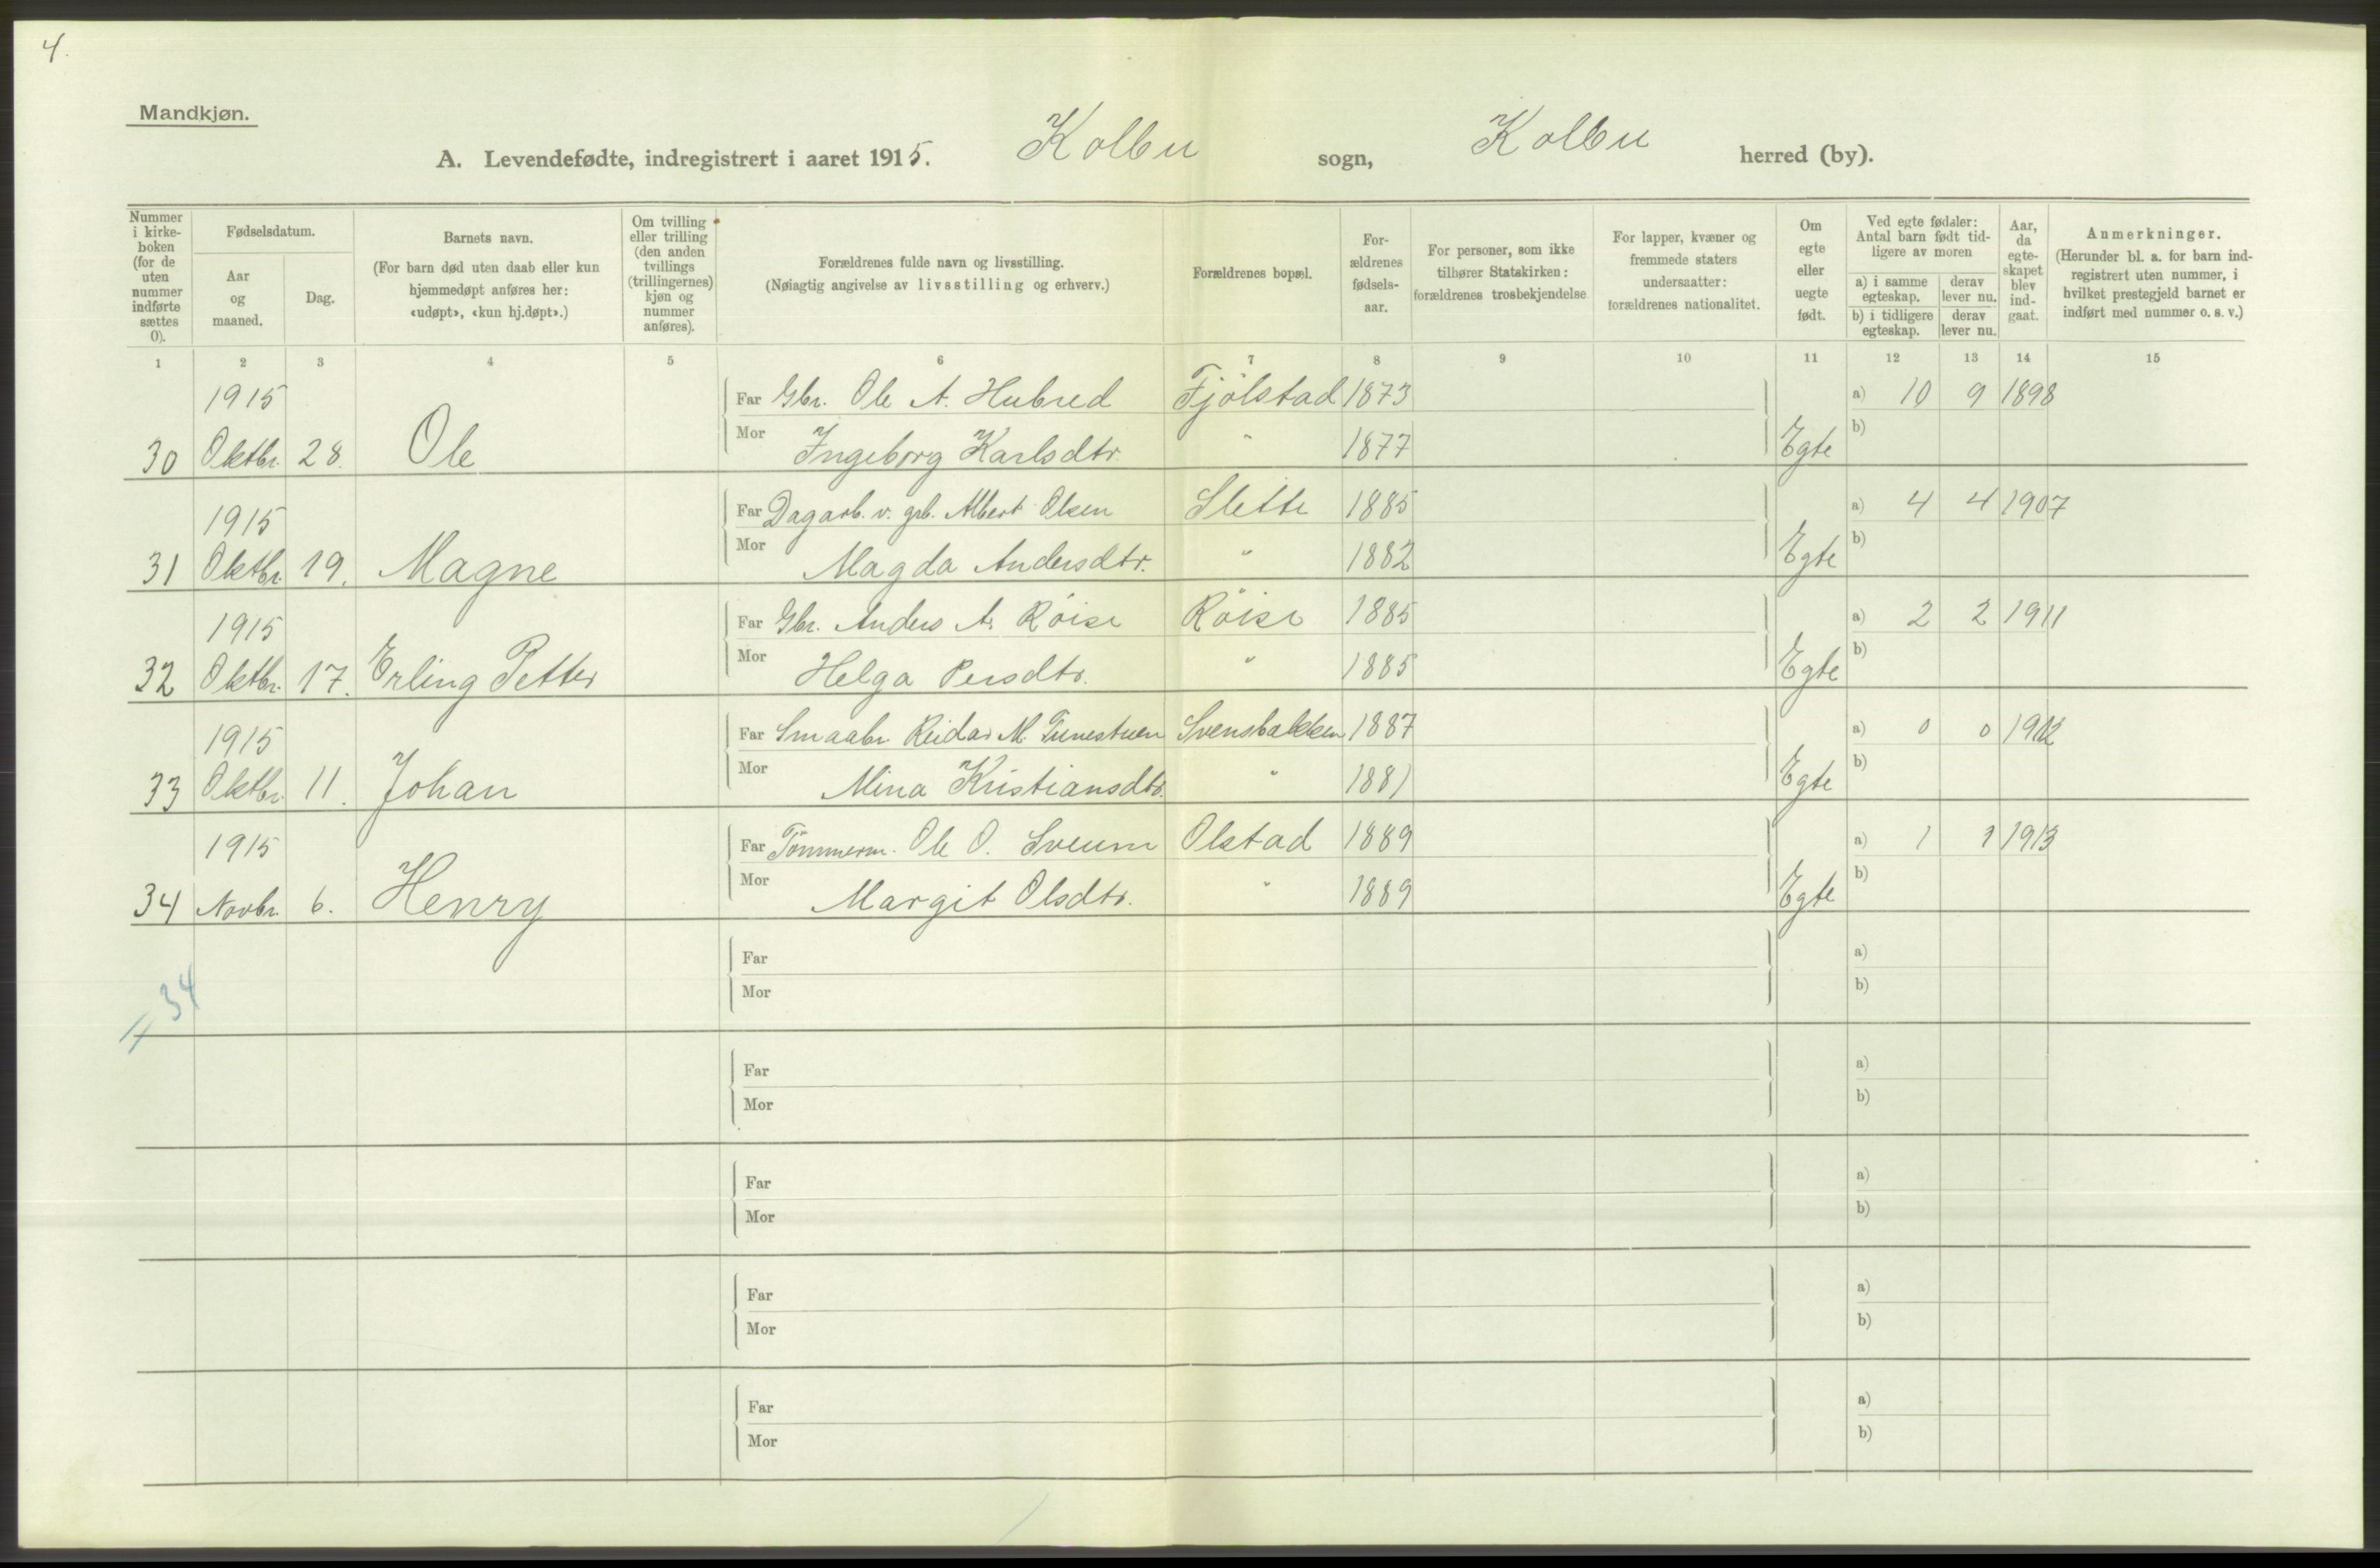 4.
Mandkjøn.
A. Levendefødte, indregistrert i aaret 1915. Kolbu sogn, Kolbu herred (by).
Nummer i kirke-boken (for de uten nummer indførte sættes 0).
Fødselsdatum.
Aar og maaned.
Dag.
Barnets navn.
(For barn død uten daab eller kun hjemmedøpt anføres her: «udøpt», «kun hj.døpt».)
Om tvilling eller trilling (den anden tvillings (trillingernes) kjøn og nummer anføres).
Forældrenes fulde navn og livsstilling.
(Nøiagtig angivelse av livsstilling og erhverv.)
Forældrenes bopæl.
For-ældrenes fødsels-aar.
For personer, som ikke tilhører Statskirken: forældrenes trosbekjendelse
For lapper, kvæner og fremmede staters undersaatter: forældrenes nationalitet.
Om egte eller uegte født.
Ved egte fødsler: Antal barn født tid-ligere av moren
a) i samme egteskap.
derav lever nu.
b) i tidligere egteskap.
derav lever nu.
Aar, da egte-skapet blev ind-gaat.
Anmerkninger.
(Herunder bl. a. for barn ind-registrert uten nummer, i hvilket prestegjeld barnet er indført med nummer o. s. v.)
1 2 3 4 5 6 7 8 9 10 11 12 13 14 15
1915 Far Gbr. Ole A. Hubred Fjölstad 1873 a) 10 9 1898
30 Oktbr. 28. Ole Mor Ingeborg Karlsdtr. " 1877 Egte b)
1915 Far Dagarb. v. grb. Albert Olsen Slette 1885 a) 4 4 1907
31 Oktbr. 19. Magne Mor Magda Andersdtr. " 1882 Egte b)
1915 Far Gbr. Anders A. Röise Röise 1885 a) 2 2 1911
32 Oktbr. 17. Erling Petter Mor Helga Persdtr. " 1885 Egte b)
1915 Far Smaabr. Reidar M. Svensbakken 1887 a) 0 0 1912
33 Oktbr. 11. Johan Mor Mina Kristiansdtr. " 1881 Egte b)
1915 Far Tömmerm. Ole O. Sveum Olstad 1889 a) 1 1 1913
34 Novbr. 6. Henry Mor Margit Olsdtr. " 1889 Egte b)
Far a)
34
Mor b)
Far a)
Mor b)
Far a)
Mor b)
Far a)
Mor b)
Far a)
Mor b)